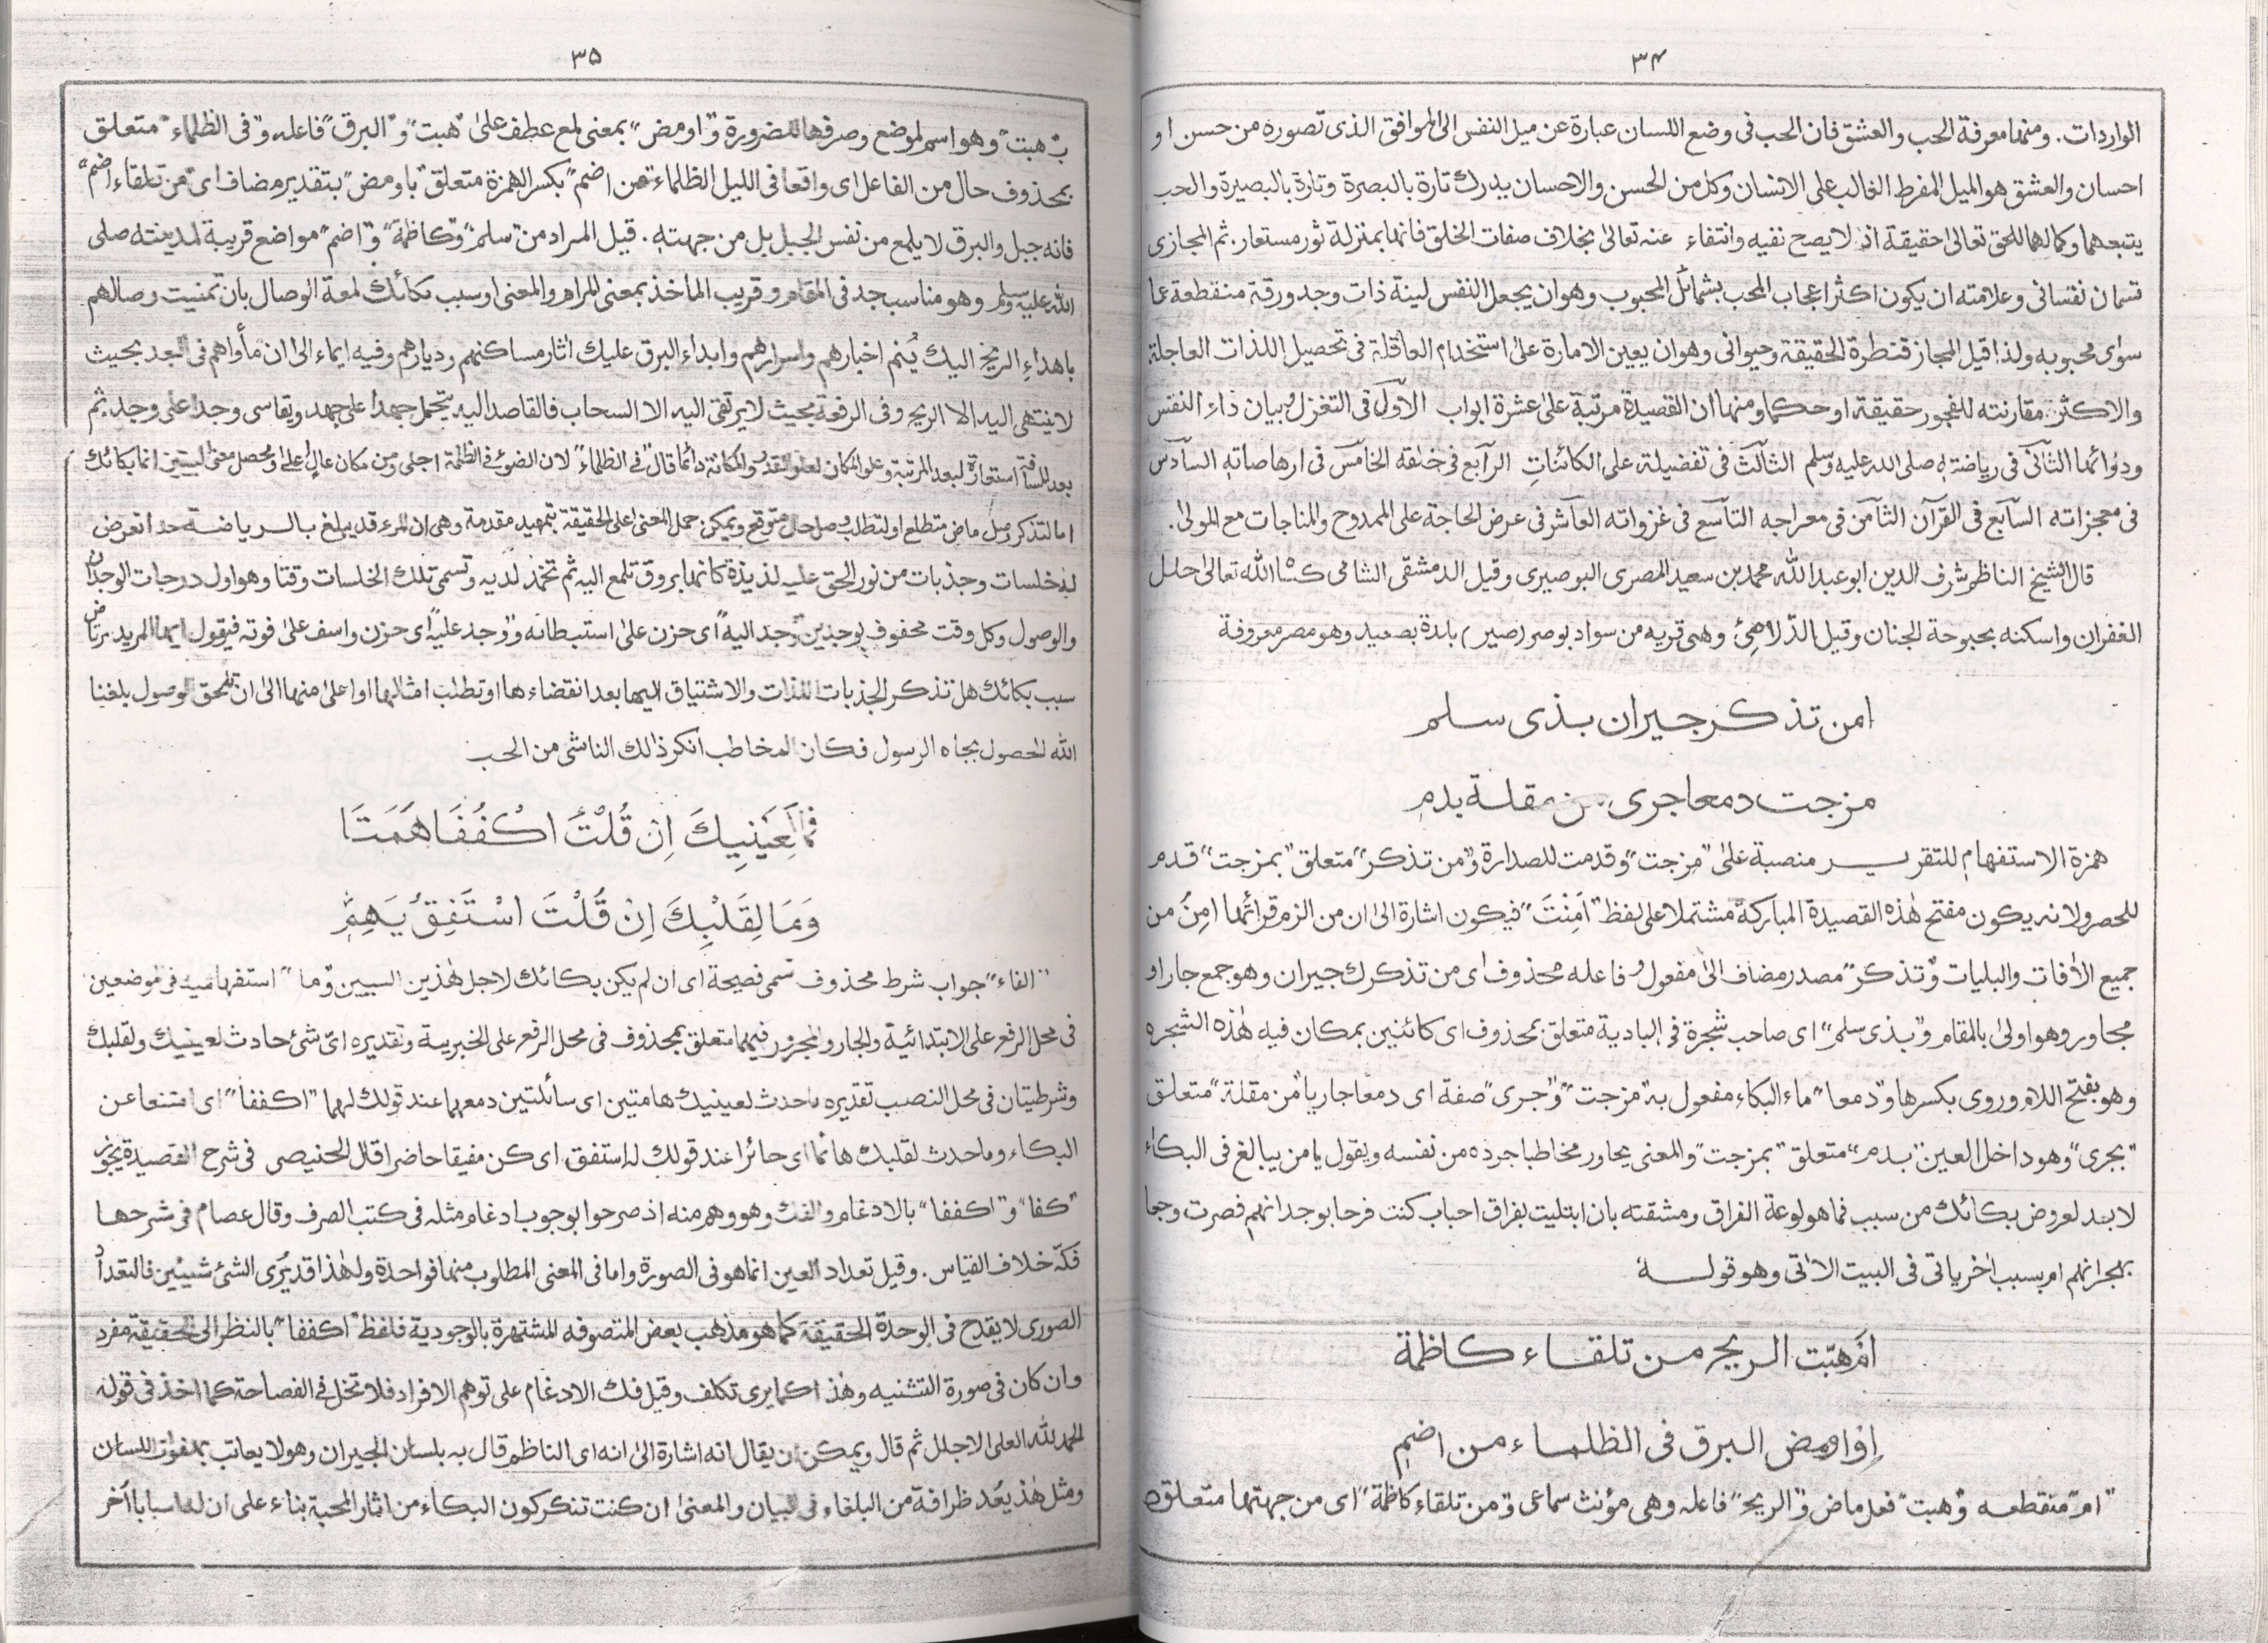 ٣٤
الواردات. ومنها معرفة الحب والعشق فان الحب فى وضع اللسان عبارة عن ميل النفس الى الموافق الذى تصوره من حسن او
احسان والعشق هو الميل المفرط الغالب على الانسان وكل من الحسن والاحسان يدرك تارة بالبصرة وتارة بالبصيرة والحب
يتبعهما وكمالهما للحق تعالى حقيقة اذ لا يصح نفيه وانتفاء عنه تعالى بخلاف صفات الخلق فانها بمنزلة ثور مستعار. ثم المجازى
قسمان نفسانى وعلامته ان يكون اكثر اعجاب المحب بشمائل المحبوب وهو ان يجعل النفس لينة ذات وجد ورقة منقطعة عما
سوى محبوبه ولذا قيل المجاز قنطرة الحقيقة وحيوانى وهو ان يعين الامارة على استخدام العاقلة فى تحصيل اللذات العاجلة
والاكثر مقارنته للفجور حقيقة او حكما ومنها ان القصيدة مرتبة على عشرة ابواب الاول فى التغزل وبيان داء النفس
ودوائها الثانى فى رياضته صلى الله عليه وسلم الثالث فى تفضيله على الكائنات الرابع فى خلقه الخامس فى ارهاصاته السادس
فى معجزاته السابع فى القرآن الثامن فى معراجه التاسع فى غزواته العاشر فى عرض الحاجة على الممدوح والمناجات مع المولى.
قال الشيخ الناظم شرف الدين ابو عبد الله محمد بن سعيد المصرى البوصيرى وقيل الدمشقى الشامى كساه الله تعالى حلل
الغفران واسكنه بحبوحة الجنان وقيل الدلاصى وهى قرية من سواد بوصور (صير) بلدة بصعيد وهو مصر معروفة
امن تذكر جيران بذى سلم
مزجت دمعا جرى من مقلة بدم
همزة الاستفهام للتقرير منصبة على "مزجت" وقدمت للصدارة و"من تذكر" متعلق "بمزجت" قدم
للحصر ولانه يكون مفتح هذه القصيدة المباركة مشتملا على لفظ "اَمِنْتَ" فيكون اشارة الى ان من الزم قرائتها امِنُ من
جميع الآفات والبليات و"تذكر" مصدر مضاف الى مفعول وفاعله محذوف اى من تذكرك جيران وهو جمع جار او
مجاور وهو اولى بالمقام و"بذى سلم" اى صاحب شجرة فى البادية متعلق بمحذوف اى كائنين بمكان فيه هذه الشجره
وهو بفتح اللام وروى بكسرها و"دمعا" ماء البكاء مفعول به "مزجت" و"جرى" صفة اى دمعا جاريا "من مقلة" متعلق
"بجرى" وهو داخل العين "بدم" متعلق "بمزجت" والمعنى يحاور مخاطبا جرده من نفسه ويقول يا من يبالغ فى البكاء
لا بد لعروض بكائك من سبب فما هو لوعة الفراق ومشقته بان ابتليت بفراق احباب كنت فرحا بوجدانهم فصرت وجعا
بهجرانهم ام بسبب آخر ياتى فى البيت الآتى وهو قوله
اَم هبّت الريح من تلقاء كاظمة
اِوْ اومض البرق فى الظلماء من اضم
"ام" منقطعه و"هبت" فعل ماض و"الريح" فاعله وهى مؤنث سماعى و"من تلقاء كاظمة" اى من جهتها متعلق
٣٥
بـ"هبت" وهو اسم لموضع وصرفها للضرورة و"اومض" بمعنى لمع عطف على "هبت" و"البرق" فاعله و"فى الظلماء" متعلق
بمحذوف حال من الفاعل اى واقعا فى الليل الظلماء "من اضم" بكسر الهمزة متعلق "باومض" بتقدير مضاف اى "من تلقاء اضم"
فانه جبل والبرق لا يلمع من نفس الجبل بل من جهته. قيل المراد من "سلم" و"كاظمة" و"اضم" مواضع قريبة لمدينته صلى
الله عليه وسلم وهو مناسب جد فى المقام وقريب الماخذ بمعنى المرام والمعنى او سبب بكائك لمعة الوصال بان تمنيت وصالهم
باهداء الريح اليك يُنم اخبارهم واسرارهم وابداء البرق عليك آثار مساكنهم وديارهم وفيه ايماء الى ان مأواهم فى البعد بحيث
لا ينتهى اليه الا الريح وفى الرفعة بحيث لا يرتقى اليه الا السحاب فالقاصد اليه يتحمل جهدا على جهد ويقاسى وجدا على وجد. ثم
بعد المسافة استعارة لبعد المرتبة وعلو المكان لعلو القدر والمكانة دائما قال "فى الظلماء" لان الضوء فى الظلمة اجلى ومن مكان عال اعلى ومحصل معنى البيتين انما بكائك
اما لتذكر وصل ماض متطلع او لتطلب وصل حال متوقع ويمكن حمل المعنى على الحقيقة بتمهيد مقدمة وهى ان المرء قد يبلغ بالرياضة حدا تعرض
له خلسات وجذبات من نور الحق عليه لذيذة كانها بروق تلمع اليه ثم تخمد لديه وتسمى تلك الخلسات وقتا وهو اول درجات الوجدان
والوصول وكل وقت محفوف بوجدين "وجد اليه" اى حزن على استبطائه و"وجد عليه" اى حزن واسف على فوته فيقول ايها المريد برتاض
سبب بكائك هل تذكر الجذبات اللذات والاشتياق اليها بعد انقضاءها او تطلب امثالها او اعلى منها الى ان تلحق الوصول بلغنا
الله الحصول بجاه الرسول فكان المخاطب انكر ذالك الناشى من الحب
فَمَا لِعَيْنِيكَ اِنْ قُلْتَ اكْفُفَا هَمَتَا
وَمَا لِقَلْبِكَ اِنْ قُلْتَ اسْتَفِقْ يَهِمٖ
"الفاء" جواب شرط محذوف تسمى فصيحة اى ان لم يكن بكائك لاجل هذين السببين و"ما" استفهامية فى موضعين
فى محل الرفع على الابتدائية والجار والمجرور فيهما متعلق بمحذوف فى محل الرفع على الخبرية وتقديره اىّ شئ حادث لعينيك ولقلبك
وشرطيتان فى محل النصب تقديره ما حدث لعينيك هامتين اى سائلتين دمعهما عند قولك لهما "اكففا" اى امتنعا عن
البكاء وما حدث لقلبك هائما اى حائرا عند قولك له استفق اى كن مفيقا حاضرا قال الحنيصى فى شرح القصيدة يجوز
"كفا" و"اكففا" بالادغام والفك وهو وهم منه اذ صرحوا بوجوب ادغام مثله فى كتب الصرف وقال عصام فى شرحها
فكه خلاف القياس. وقيل تعداد العين انما هو فى الصورة واما فى المعنى المطلوب منها فواحدة ولهذا قد يُرى الشئ شيئين فالتعدد
الصورى لا يقدح فى الوحدة الحقيقة كما هو مذهب بعض المتصوفه المشتهرة بالوجودية فلفظ "اكففا" بالنظر الى الحقيقة مفرد
وان كان فى صورة التثنيه وهذا كما يرى تكلف وقيل فك الادغام على توهم الافراد فلا تخل فى الفصاحة كما اخذ فى قوله
الحمد لله العلى الاجلل ثم قال ويمكن ان يقال انه اشارة الى انه اى الناظم قال به بلسان الجيران وهو لا يعاتب بهفوات اللسان
ومثل هذا يُعد ظرافة من البلغاء فى البيان والمعنى ان كنت تنكر كون البكاء من آثار المحبة بناء على ان له اسبابا آخر